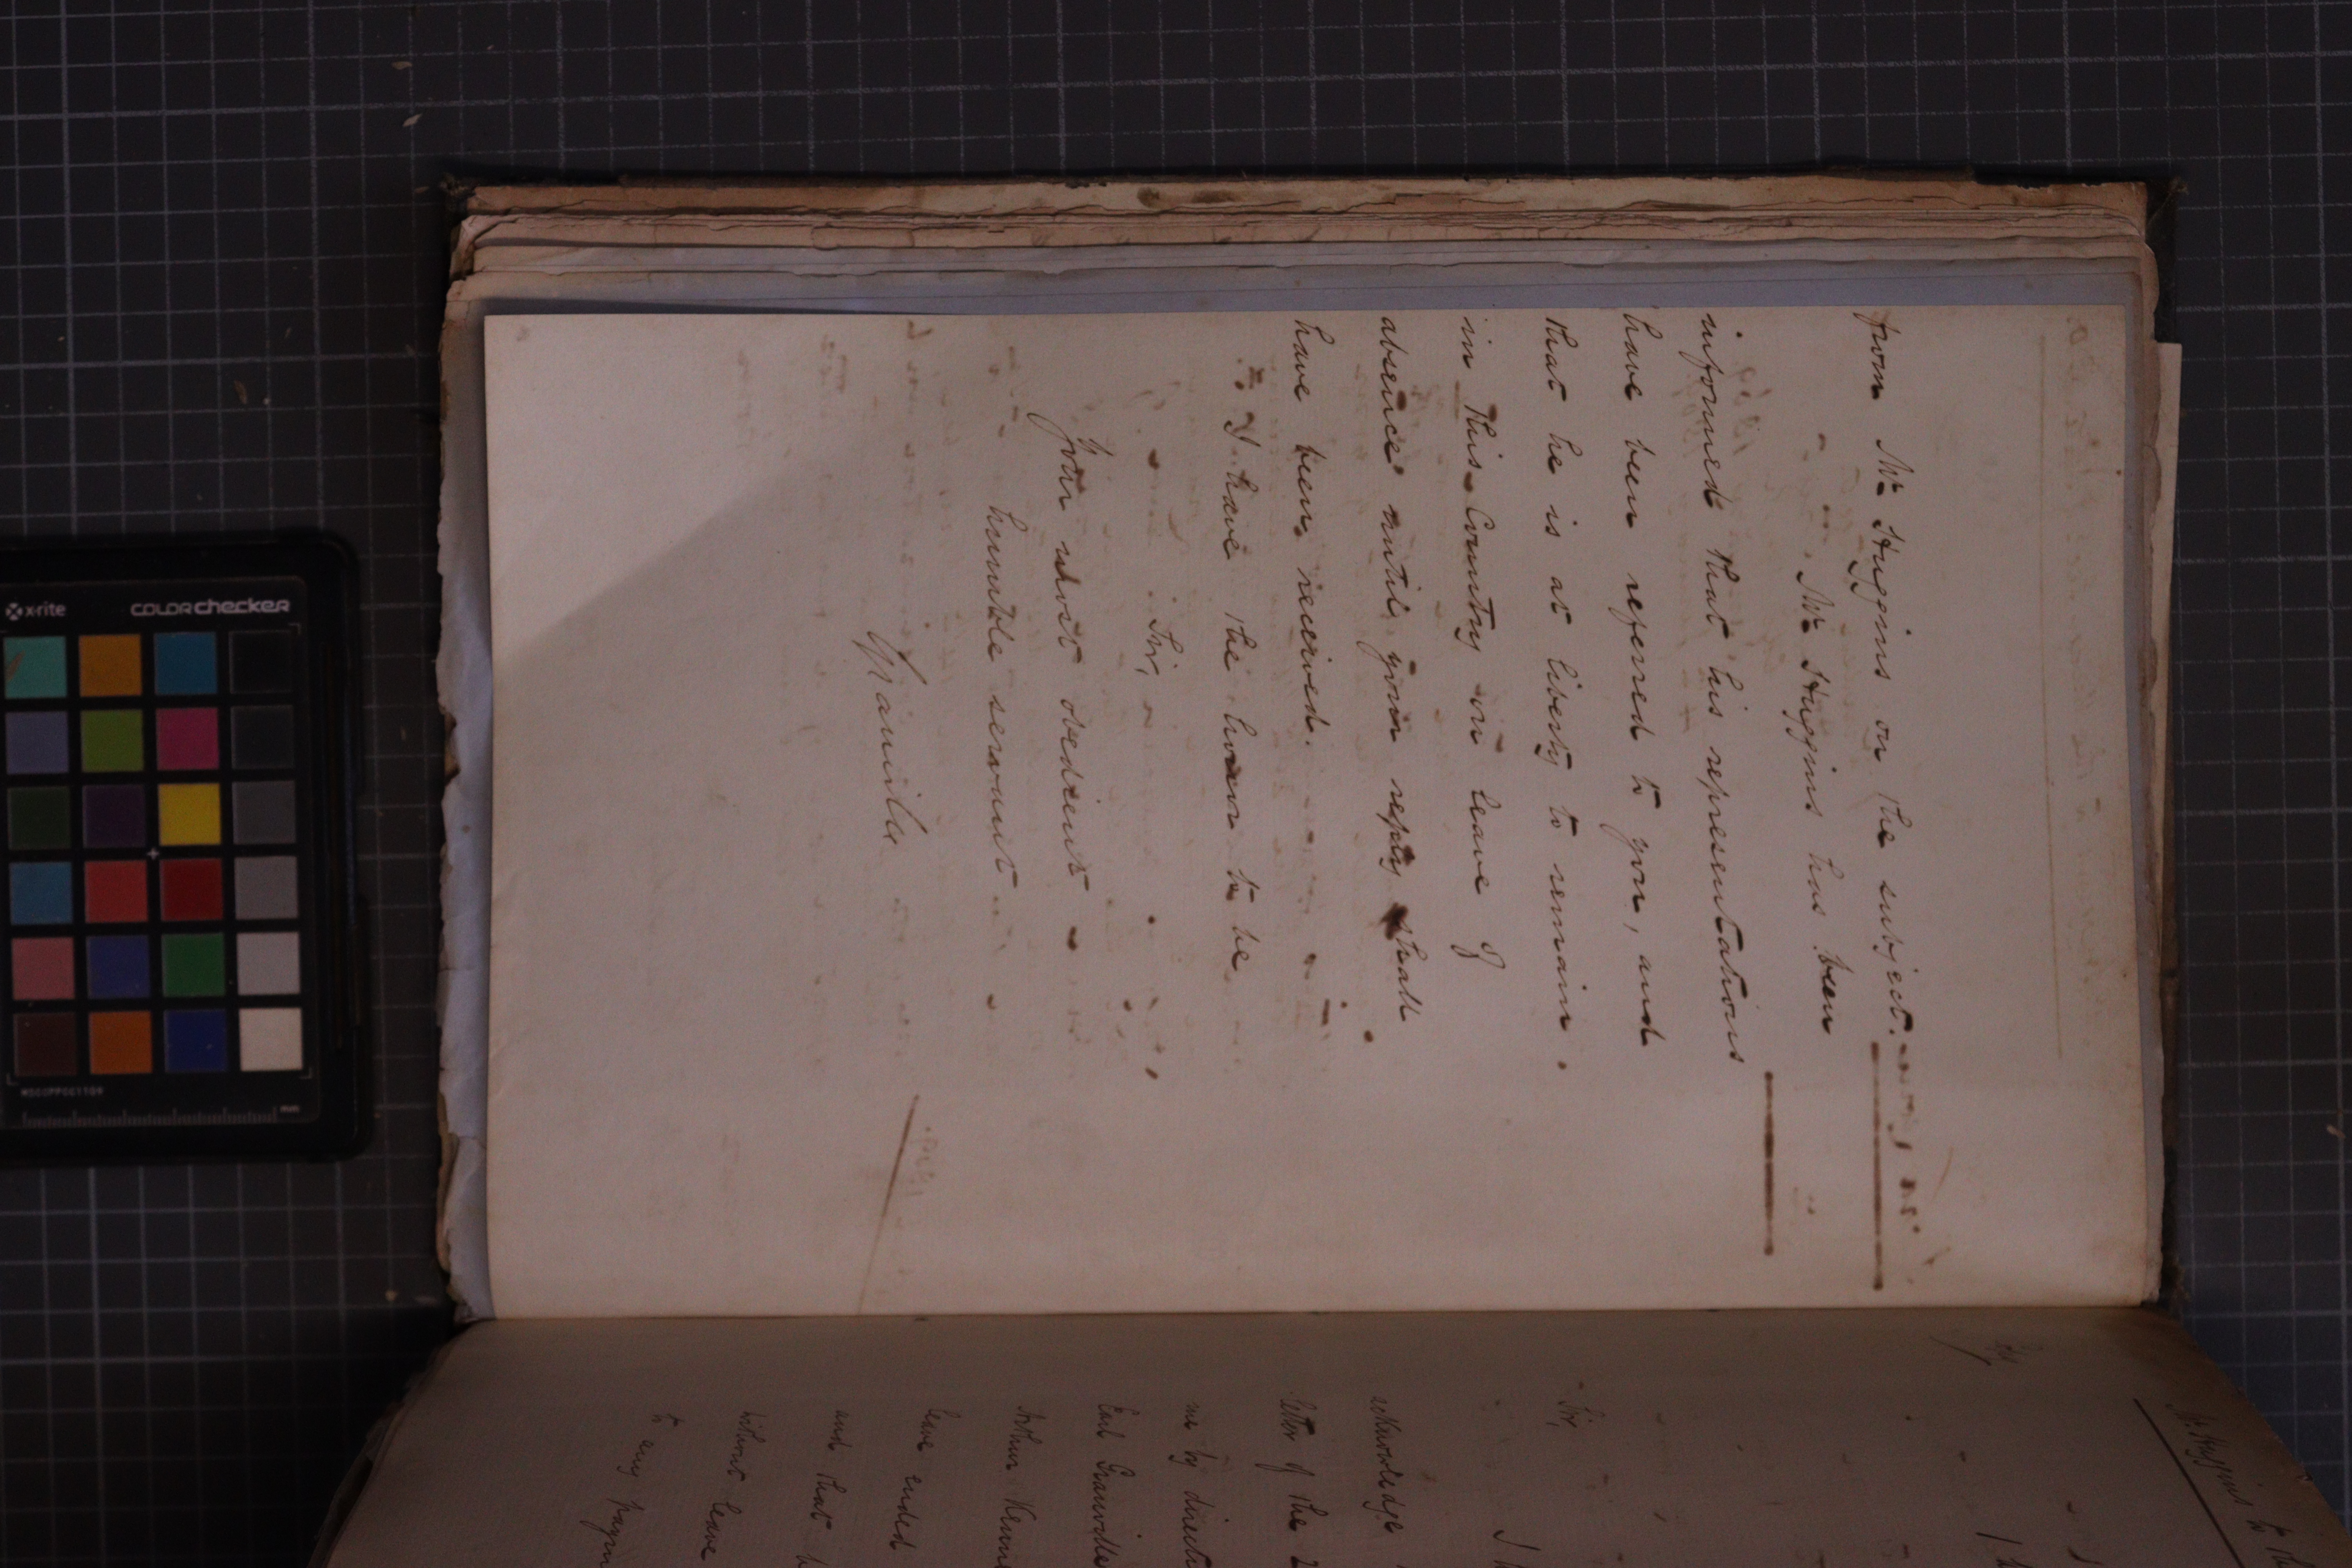 from Mr Huggins on the subject.
Mr Huggins has been
informed that his representations
have been referred to you, and
that he is at liberty to remain
in this Country on leave of
absence until your reply shall
have been received.
I have the honor to be
Sir,
Your most obedient
humble servant
Granville
Mr Huggins to
Sir,
I
acknowledge
letter of the 2
me by direct
Earl Granville
Arthur Kenn
leave ended
and that h
without leave
to any paym
x-rite
COLORchecker
MSCCPPCC1104
mm